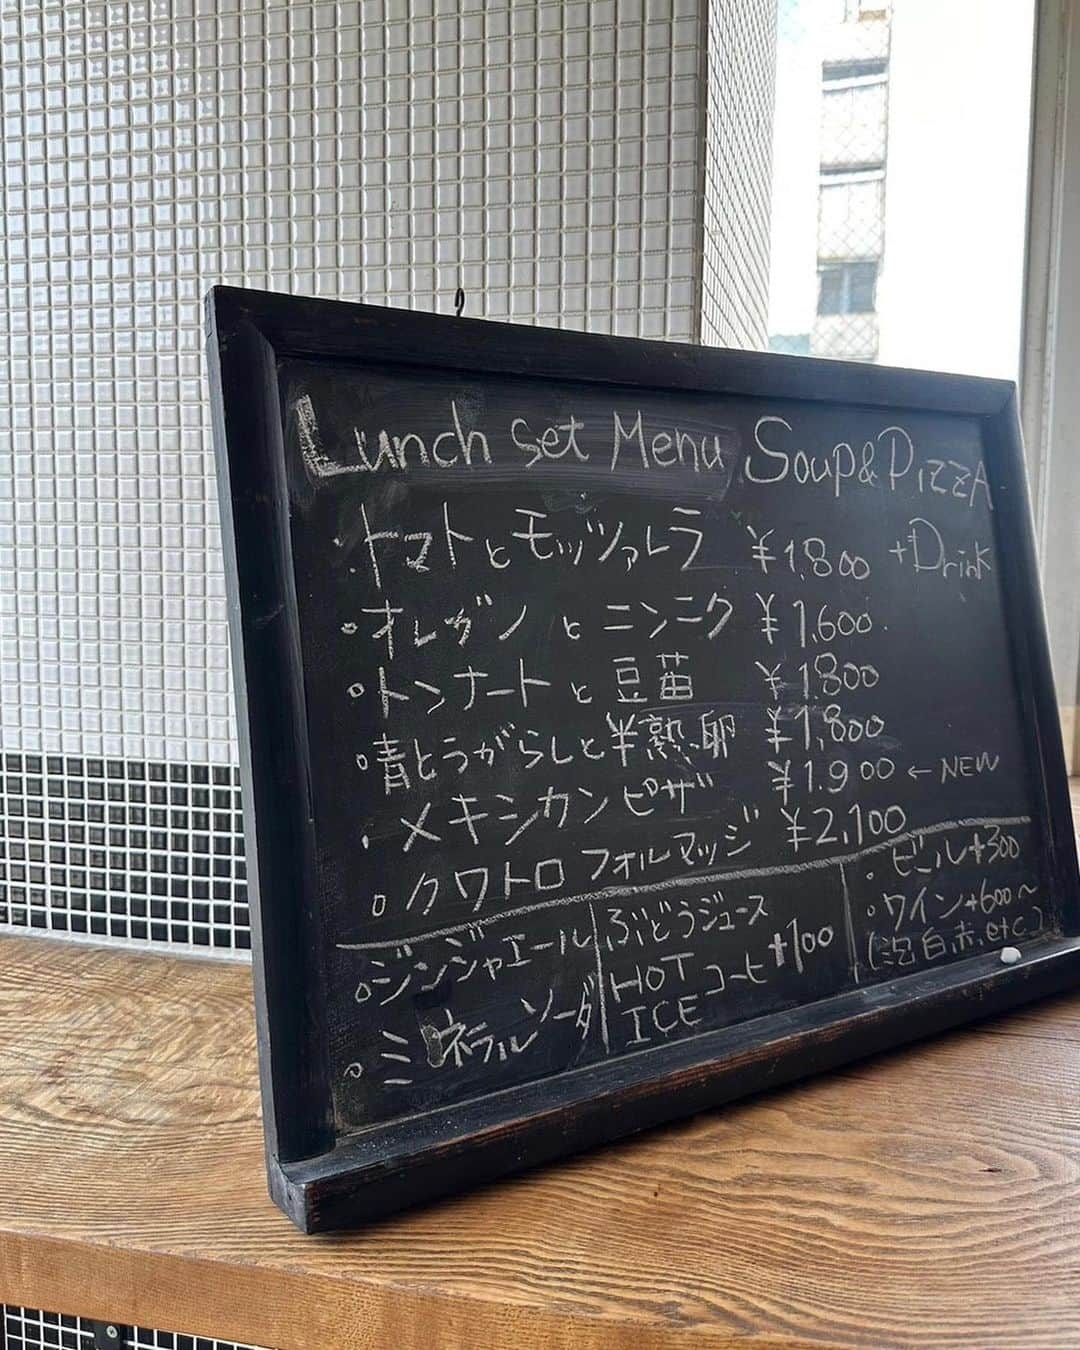 Lunch set Menu Soup&PizzA
・トマトとモッツァレラ ¥1.800 +Drink
○オレガノとニンニク ¥1,600.
○トンナートと豆苗 ¥1.800
・青とうがらしと半熟卵 ¥1,800
・メキシカンピザ ¥1.900 ←NEW
○クワトロフォルマッジ ¥2,100
○ジンジャエール
・ミネラルソーダ
ぶどうジュース
HOT
ICE
コーヒ +100
・ビール+300
○ワイン+600~
(泡白赤.etc)